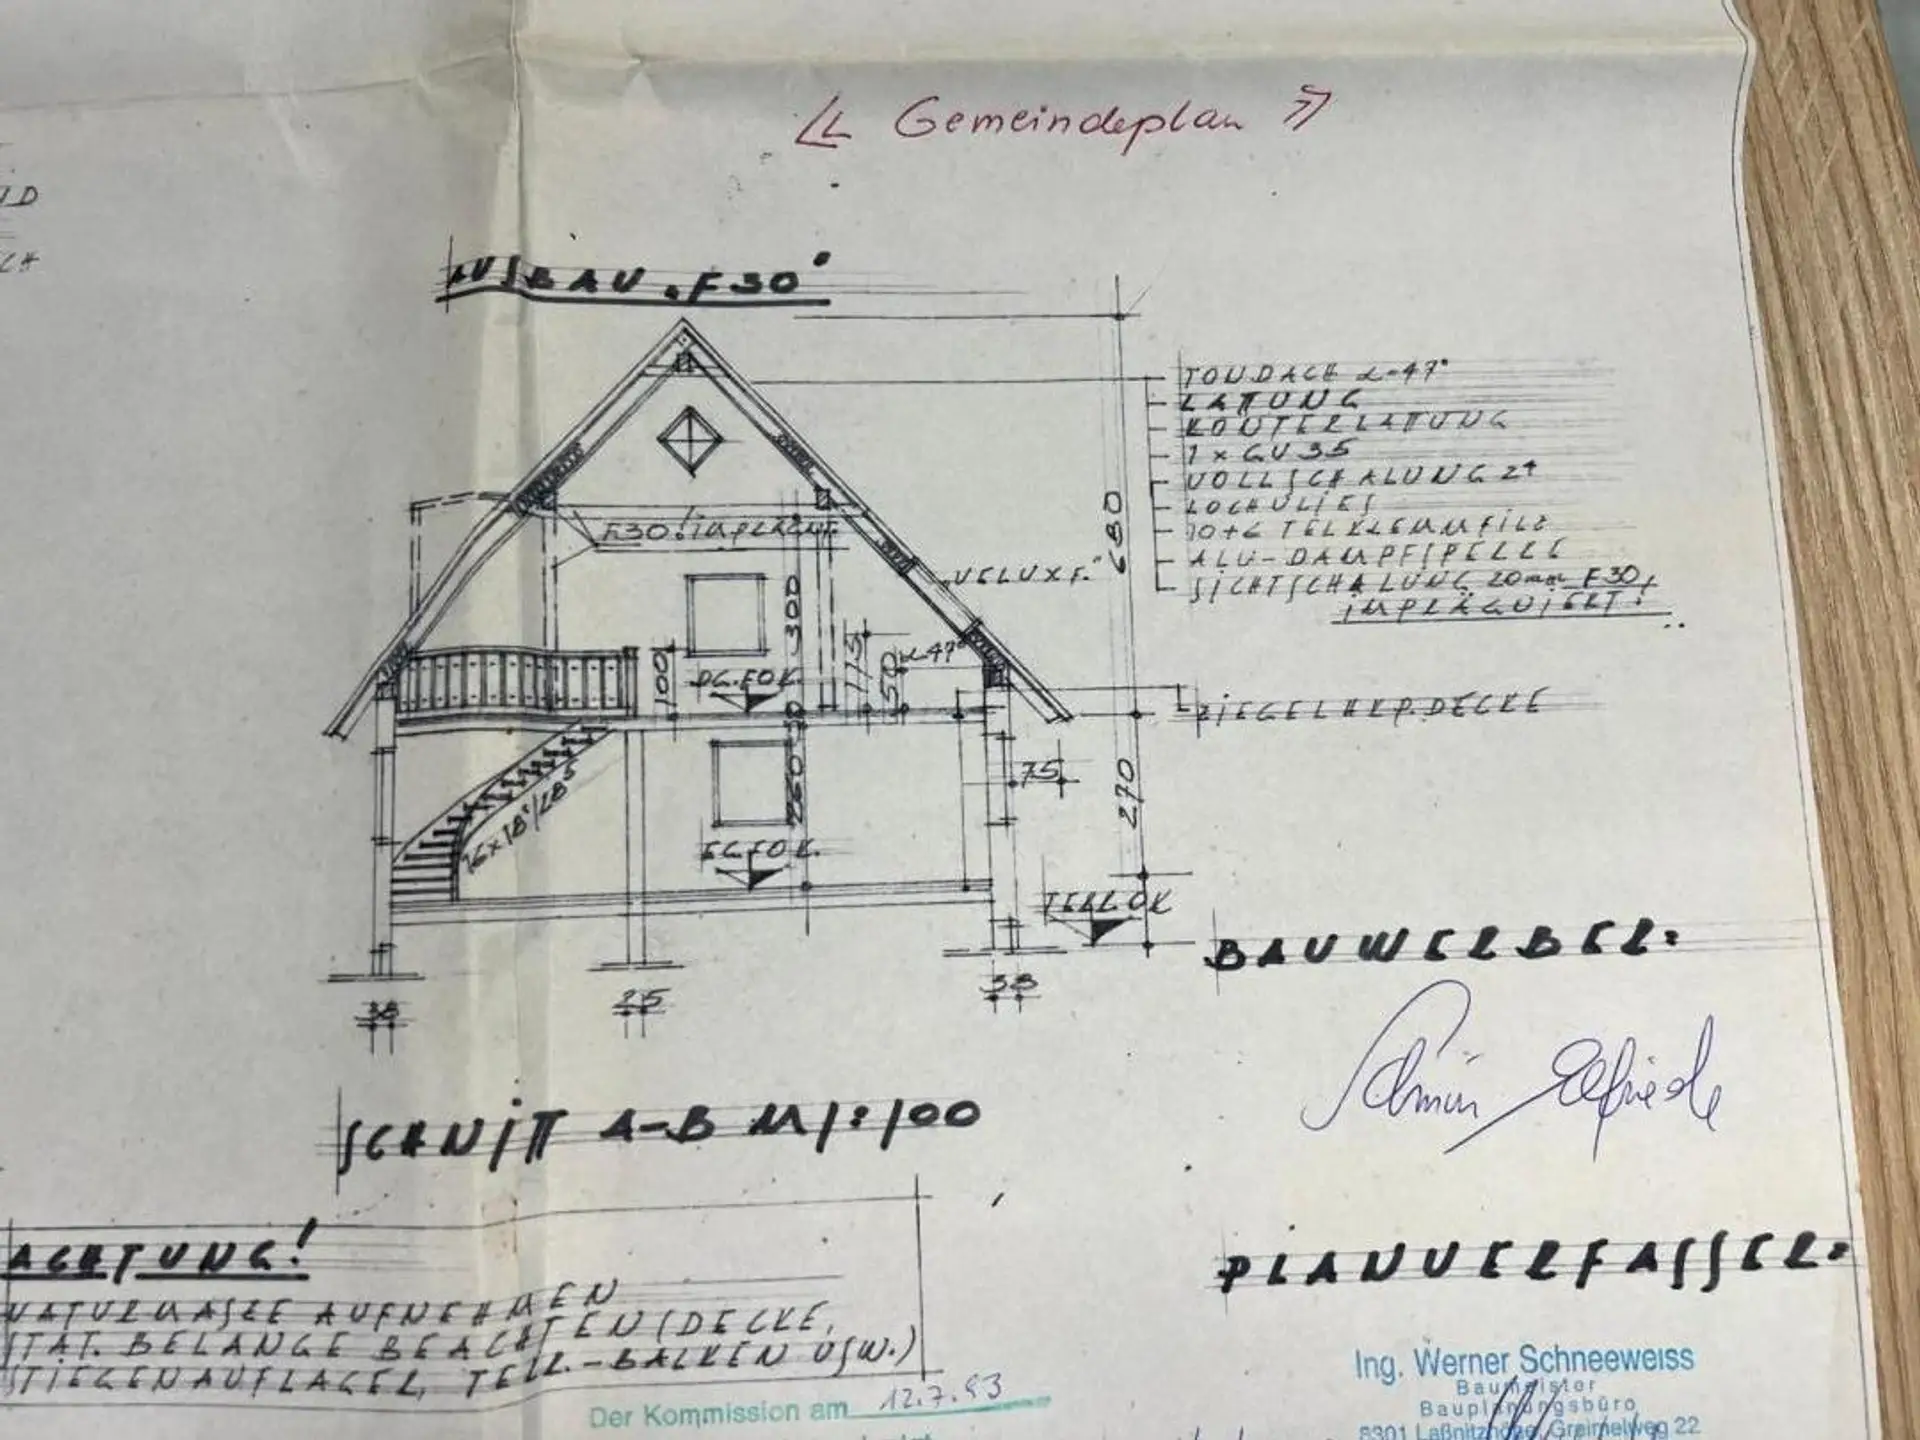 « Gemeindeplan »
AUSBAU „F30"
TONDACH α=47°
LATTUNG
KONTERLATTUNG
1 x GV 35
VOLLSCHALUNG 24
LOCHVLIES
10+6 TELKLEMMFILZ
ALU-DAMPFSPERRE
SICHTSCHALUNG 20mm F30,
IMPRÄGNIERT!
F30 IMPRÄGN.
VELUX F.
680
300
115
50
α=47°
100
DG.FOK.
ZIEGELHKP.DECKE
30
260
75
270
16x18/28
EG.FOK.
TERR.OK
38
25
38
BAUWERBER:
Elfriede
SCHNITT A-B M 1:100
ACHTUNG!
NATURMASSE AUFNEHMEN
STAT. BELANGE BEACHTEN (DECKE,
STIEGENAUFLAGER, TERR.-BALKEN USW.)
PLANVERFASSER:
Ing. Werner Schneeweiss
Baumeister
Bauplanungsbüro
8301 Laßnitzhöhe, Greimelweg 22
Der Kommission am 12.7.93